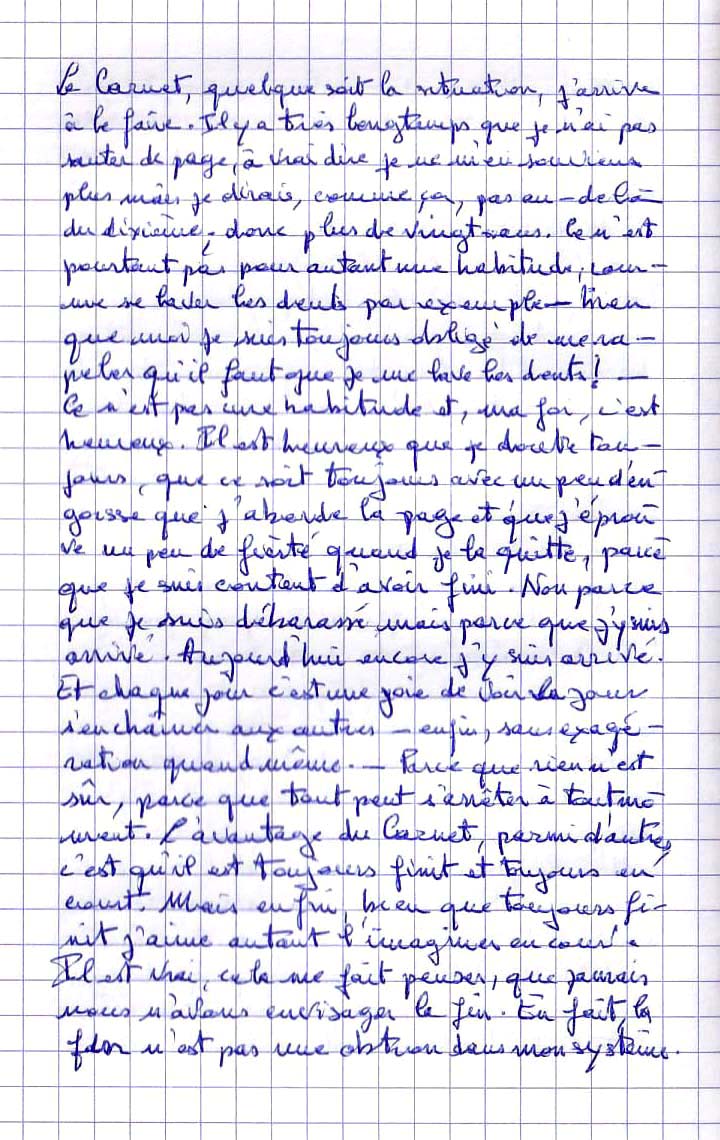 Le Carnet, quelque soit la situation, j'arrive
à le faire. Il y a très longtemps que je n'ai pas
sauter de page, à vrai dire je ne m'en souviens
plus mais je dirais, comme ça, pas au-delà
du dixième, donc plus de vingt ans. Ce n'est
pourtant pas pour autant une habitude, com-
me se laver les dents par exemple — bien
que moi je suis toujours obligé de me ra-
peler qu'il faut que je me lave les dents! —
Ce n'est pas une habitude et, ma foi, c'est
heureux. Il est heureux que je doute tou-
jours, que ce soit toujours avec un peu d'en-
goisse que j'aborde la page et que j'éprou
ve un peu de fierté quand je la quitte, parce
que je suis content d'avoir fini. Non parce
que je suis débarassé mais parce que j'y suis
arrivé. Aujourd'hui encore j'y suis arrivé.
Et chaque jour c'est une joie de voir la jour
s'enchaîner aux autres — enfin, sans exagé-
ration quand même. — Parce que rien n'est
sûr, parce que tout peut s'arrêter à tout mo
ment. L'avantage du Carnet, parmi d'autres,
c'est qu'il est toujours finit et toujours en
court. Mais enfin, bien que toujours fi-
nit j'aime autant l'imaginer en cour.
Il est vrai, cela me fait penser, que jamais
nous n'avons envisager la fin. En fait, la
fin n'est pas une obtion dans mon système.